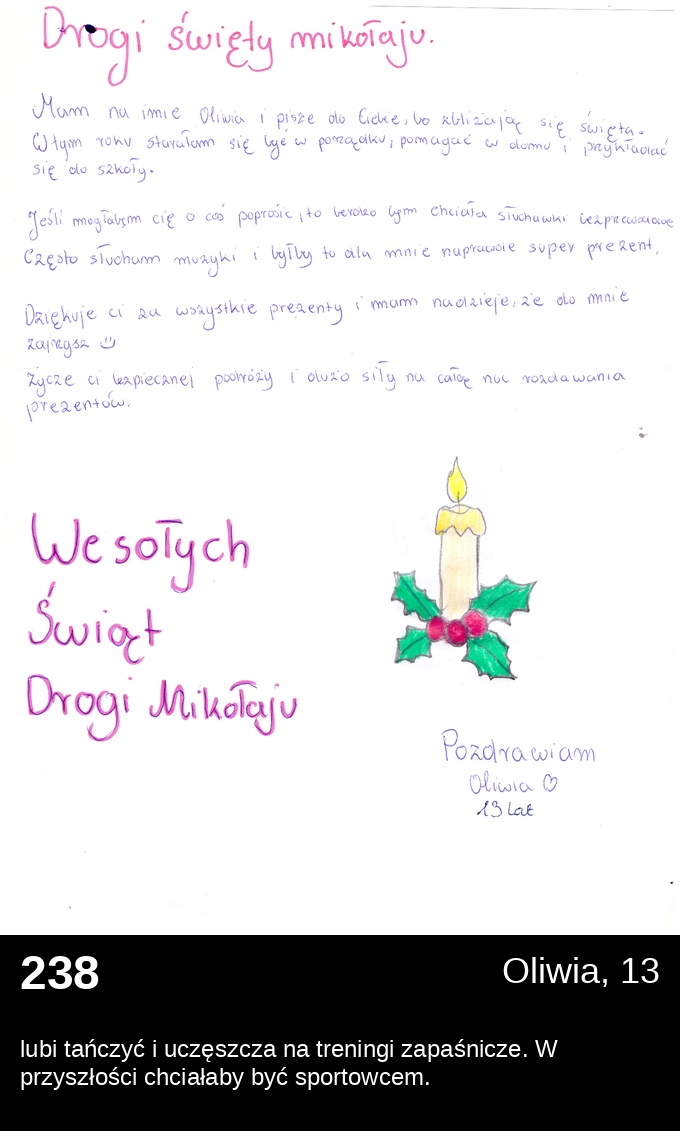 Drogi święty mikołaju.
Mam na imie Oliwia i pisze do Ciebie, bo zbliżają się święta.
W tym roku starałam się być w porządku, pomagać w domu i przykładać
się do szkoły.
Jeśli mogłabym cię o coś poprosic, to bardzo bym chciała słuchawki bezprzewodowe
Często słucham muzyki i byłby to dla mnie naprawde super prezent.
Dziękuje ci za wszystkie prezenty i mam nadzieje, że do mnie
zajrzysz
Życze ci bezpiecznej podróży i dużo siły na całąc noc rozdawania
prezentów.
Wesołych
Świąt
Drogi Mikołaju
Pozdrawiam
Oliwia ♡
13 Lat
238
Oliwia, 13
lubi tańczyć i uczęszcza na treningi zapaśnicze. W
przyszłości chciałaby być sportowcem.